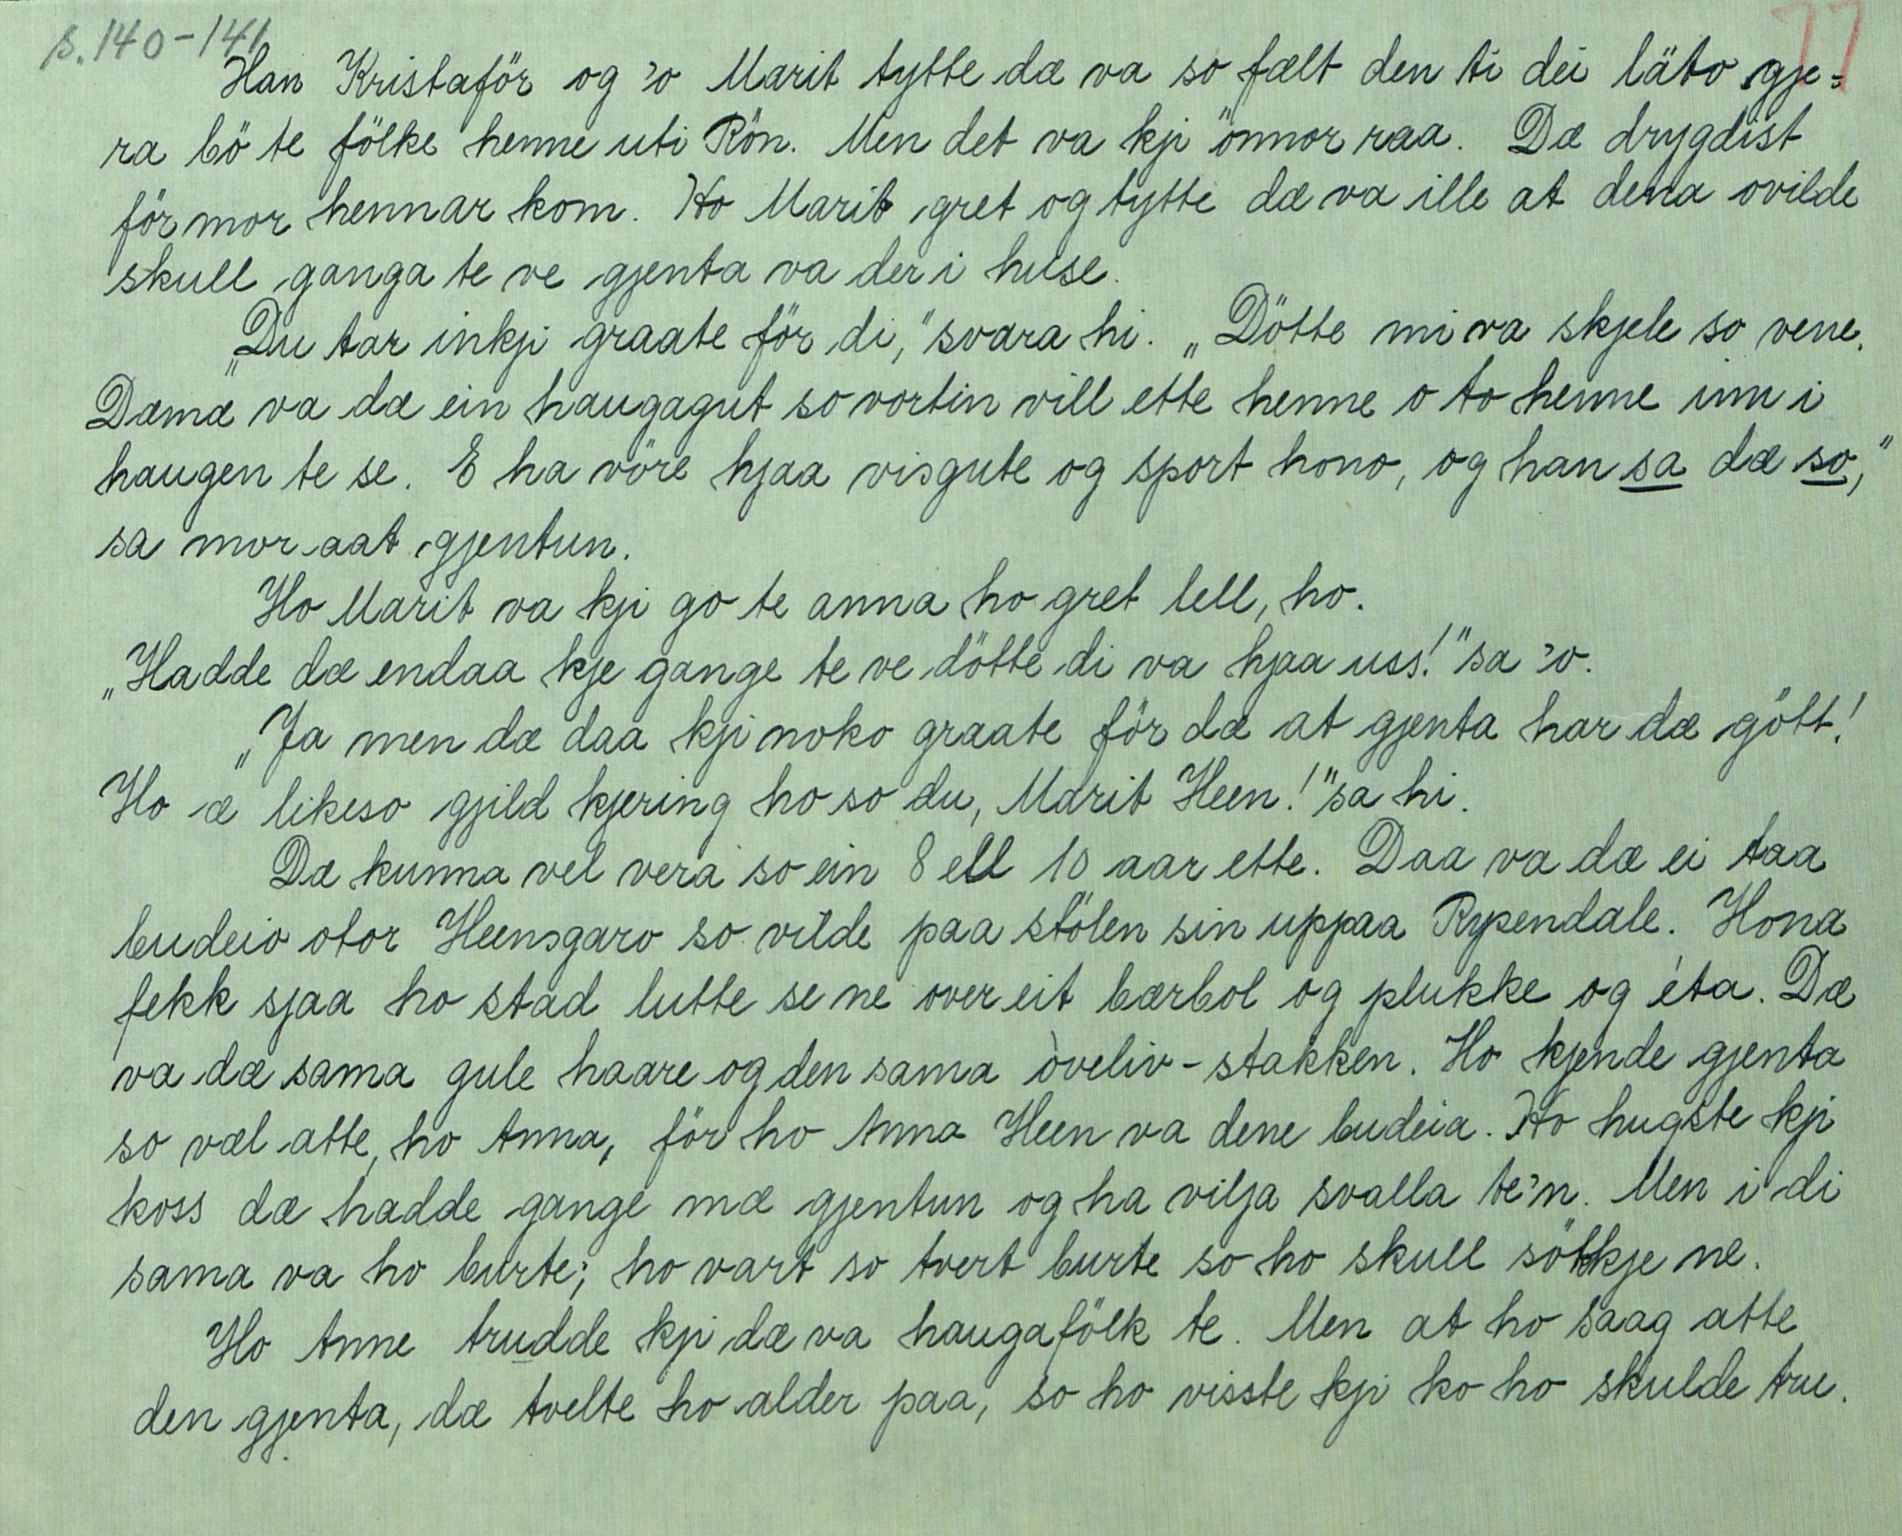 s. 140-141
77
Han Kristaför og 'o Marit tytte dæ va so fælt den ti dei läto gje=
ra bö te fölke henne uti Rön. Men det va kji önnor raa. Dæ drygdist
för mor hennar kom. Ho Marit gret og tytte dæ va ille at dena ovilde
skull ganga te ve gjenta va der i huse.
„Du tar inkji graate för di," svara hi. „Dötte mi va skjele so vene.
Dæmæ va dæ ein haugagut so vortin vill ette henne o to henne inn i
haugen te se. E ha vöre hjaa visgute og sport hono, og han sa dæ so,"
sa mor aat gjentun.
Ho Marit va kji go te anna ho gret lell, ho.
„Hadde dæ endaa kje gange te ve dötte di va hjaa uss!" sa 'o.
„Ja men dæ daa kji noko graate för dæ at gjenta har dæ gött!
Ho æ likeso gjild kjering ho so du, Marit Heen!" sa hi.
Dæ kunna vel vera so ein 8 ell 10 aar ette. Daa va dæ ei taa
budeio otor Heensgaro so vilde paa stölen sin uppaa Rypendale. Hona
fekk sjaa ho stad lutte se ne over eit bærbol og plukke og éta. Dæ
va dæ sama gule haare og den sama òveliv-stakken. Ho kjende gjenta
so væl atte, ho Anna, för ho Anna Heen va dene budeia. Ho hugste kji
koss dæ hadde gange mæ gjentun og ha vilja svalla te'n. Men i di
sama va ho burte; ho vart so tvert burte so ho skull sökkje ne.
Ho Anne trudde kji dæ va haugafölk te. Men at ho saag atte
den gjenta, dæ tvelte ho alder paa, so ho visste kji ko ho skulde tru.